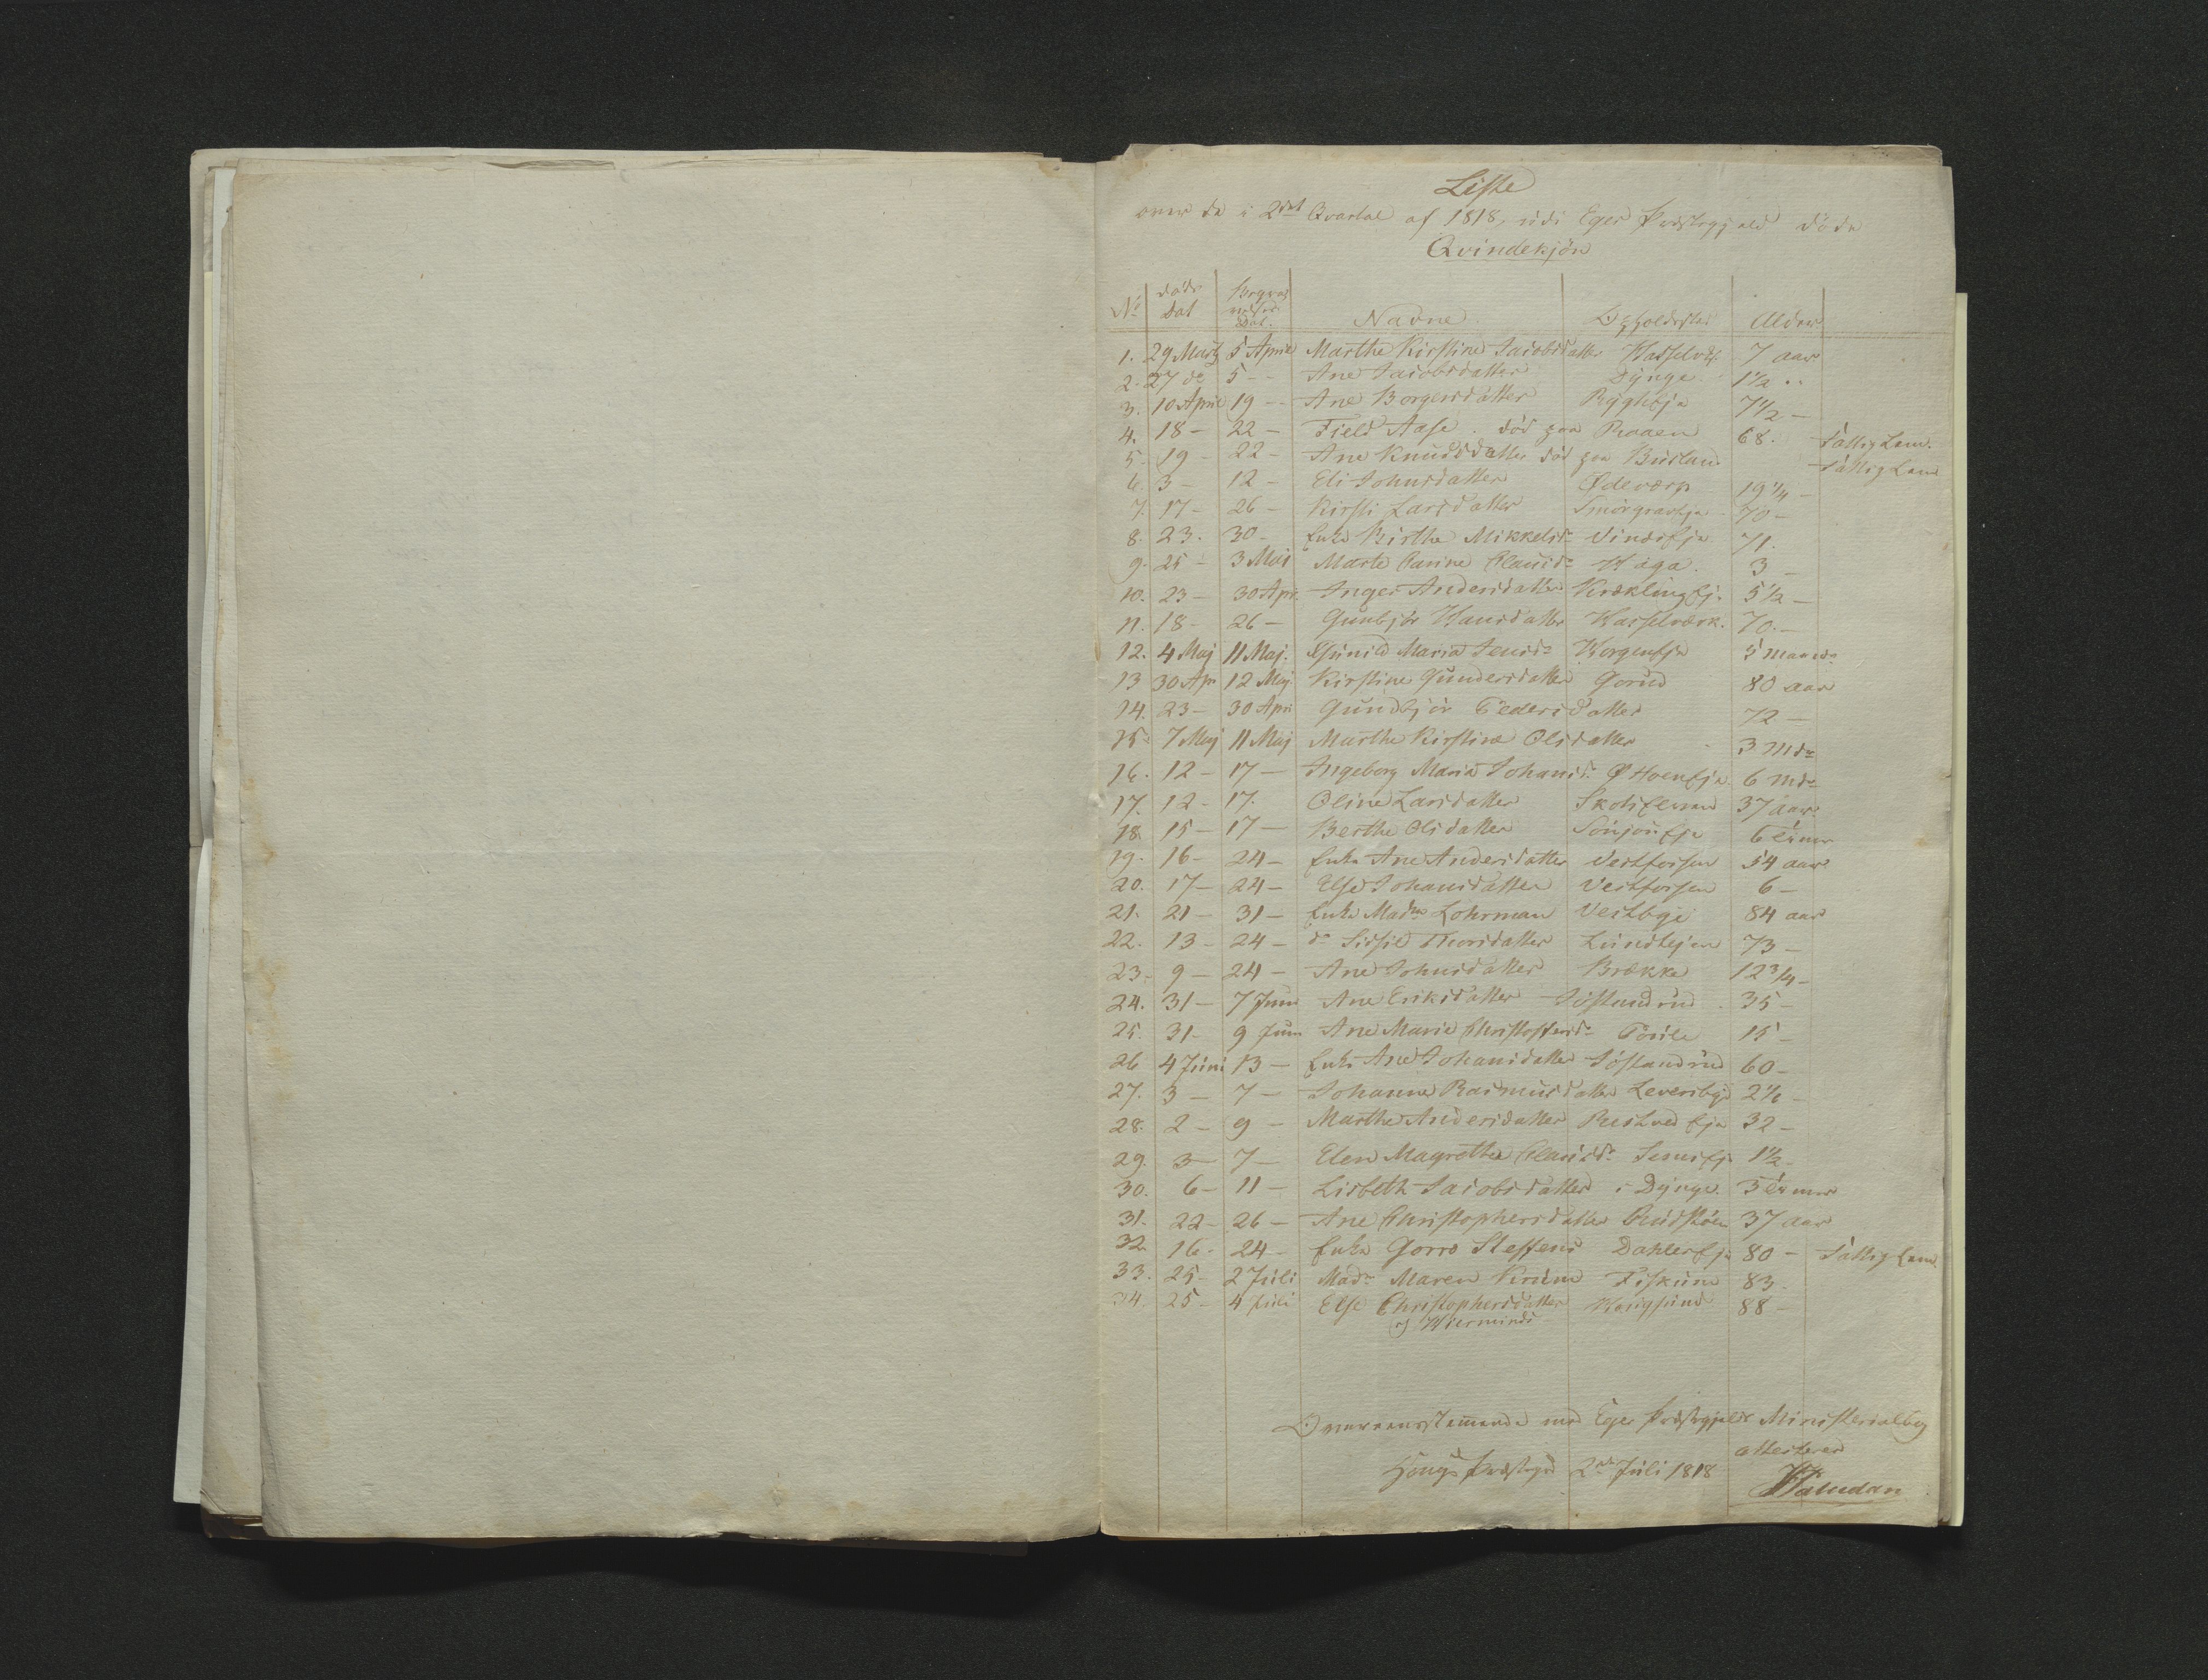 Liste
over de i 2det Qvartal af 1818, udi Eger Præstegjeld döde
Qvindekjön
No döds Dat Begravelses Dat. Navne Opholdsted Alder
1. 29 Marts 5 April Marthe Kirstine Jacobsdatter Hasselv: 7 aar
2. 27 do 5 - Ane Jacobsdatter Dynge 1 1/2 -
3. 10 April 19 - Ane Borgersdatter Røgleje 7 1/2 -
4. 18 - 22 - Field Aase. död paa Braaen 68. fattig Lem.
5. 19 - 22 - Ane Knudsdatter död paa Buslan fattig Lem
6. 3 - 12 - Eli Johnsdatter Ødeværp 19 1/4 -
7. 17 - 26 - Kirsti Larsdatter SmörgravEje 70 -
8. 23. 30 - Enke Birthe Mikkelsdr VindsEje 71.
9. 25 - 3 Mai Marte Carine Clausdr Haga. 3 -
10. 23 - 30 Apr. Inger Andersdatter KræklingEj. 5 1/2 -
11. 18 - 26 - Gunbjör Hansdatter Hasselværk. 70. -
12. 4 Maj 11 Maj. Gunild Maria Jensdr HorgenEje 5 maander
13 30 Apr 12 Maj. Kirstine Gundersdatter Gorud 80 aar
14. 23 - 30 Apri Gundbjör Pedersdatter 72 -
15. 7 Maj 11 Maj Marthe Kirstine Olsdatter - 3 Mdr
16. 12 - 17 - Ingeborg Maria Johansdr Ø HoenEje 6 Mdr
17. 12 - 17. Oline Larsdatter Skotselven 37 aar
18. 15 - 17 - Berthe Olsdatter Eje 6
19. 16 - 24 - Enke Ane Andersdatter Vestfossen 54 aar
20. 17 - 24 - Else Johansdatter Vestfossen 6 -
21. 21 - 31 - Enke Madm Lohrman Vestbye 84 aar
22. 13 - 24 - do Sidsil Thorsdatter Lundtejen 73 -
23. 9 - 24 - Ane Johnsdatter Brække 12 3/4 -
24. 31 - 7 Juni Ane Eriksdatter Söstandrud 35 -
25. 31 - 9 Juni Ane Marie Christoffersdr 15 -
26 4 Juni 13 - Enke Ane Johansdatter Söstandrud 60 -
27. 3 - 7 - Johanne Rasmusdatter Leversbye 2 1/2 -
28. 2 - 9 - Marthe Andersdatter Eje 32 -
29. 3 7 - Elen Magrethe Clausdr Ej 1 1/2 -
30. 6 - 11 - Lisbeth Jacobsdatter i Dynge. 3
31. 22 - 26 - Ane Christophersdatter 37 aar
32. 16 - 24 - Enke Gorro Steffens DahlerEje 80 - fattig Lem
33. 25 - 2 Juli Madm Maren Krum Fiskum 83.
34. 25 - 4 Juli Else Christophersdatter Hougsund 88 -
Overeensstemmende med Eger Præstegjelds Ministerialbog
attesteres
Houg Præstegd 2den Juli 1818
Paludan